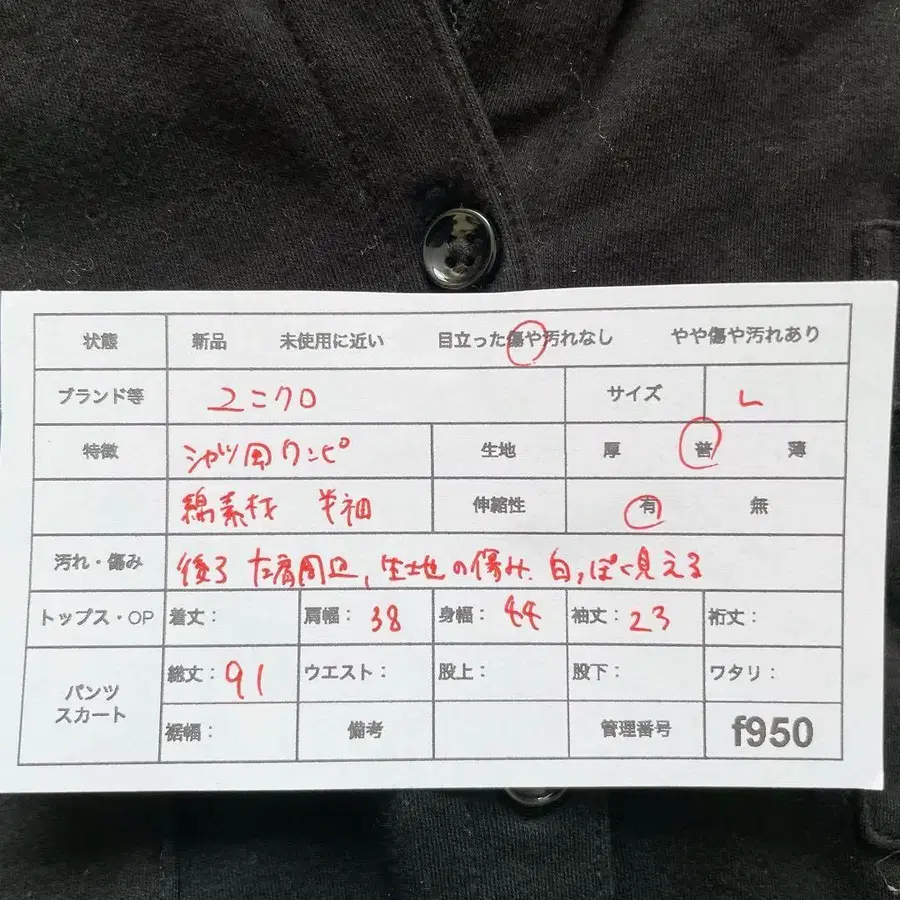 状態 新品 未使用に近い 目立った傷や汚れなし やや傷や汚れあり
ブランド等 ユニクロ サイズ L
特徴 シャツ風ワンピ 生地 厚 普 薄
綿素材 半袖 伸縮性 有 無
汚れ・傷み 後ろ 左肩周辺、生地の傷み、白っぽく見える
トップス・OP 着丈： 肩幅：38 身幅：44 袖丈：23 裄丈：
パンツ スカート 総丈：91 ウエスト： 股上： 股下： ワタリ：
裾幅： 備考 管理番号 f950